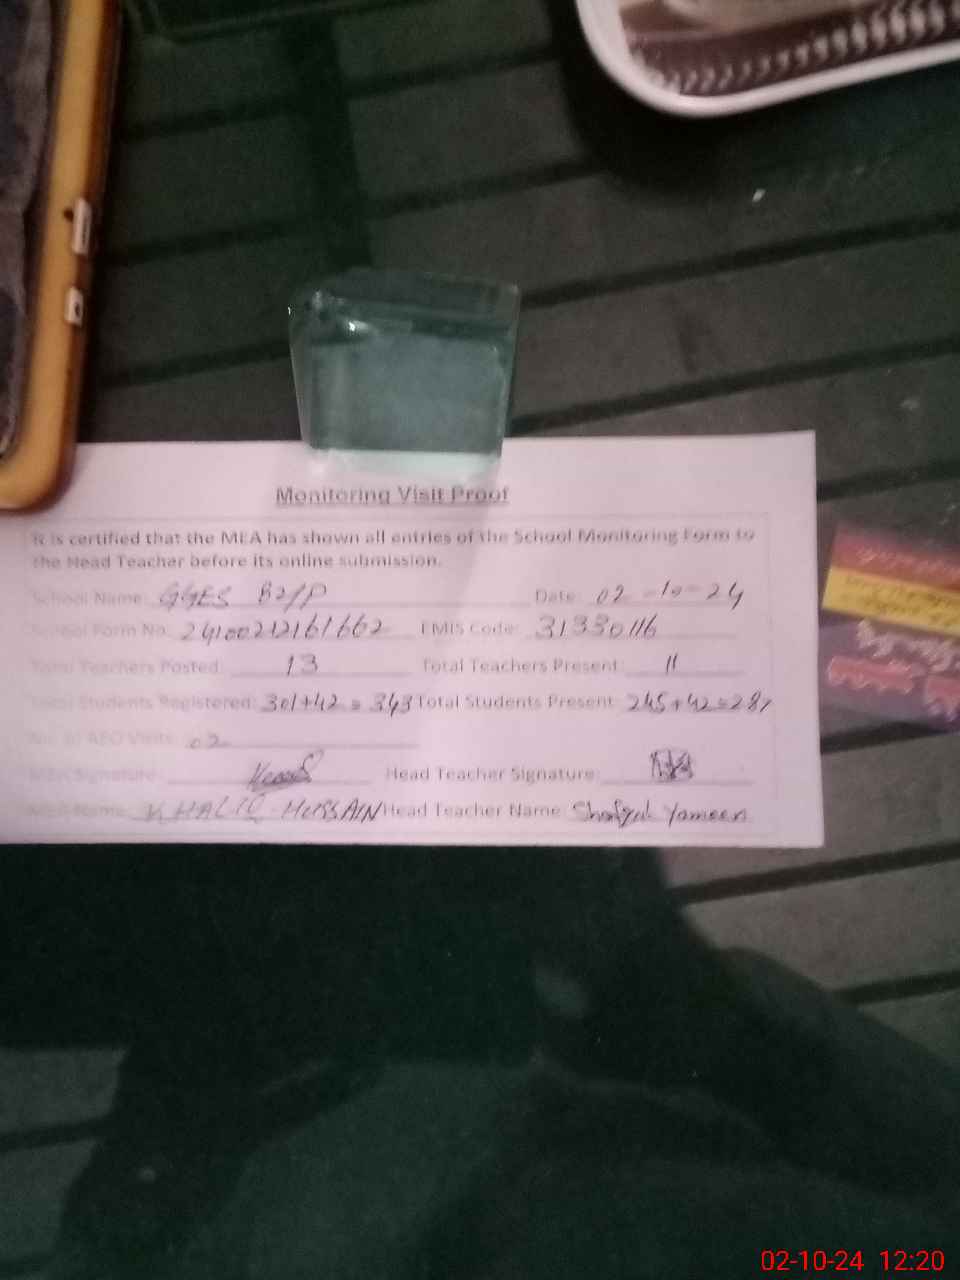 Monitoring Visit Proof
It is certified that the MEA has shown all entries of the School Monitoring Form to
the Head Teacher before its online submission.
School Name: GGES 82/P Date: 02-10-24
School Form No: 24100212161662 EMIS Code: 31330116
Total Teachers Posted: 13 Total Teachers Present: 11
Total Students Registered: 301+42=343 Total Students Present: 245+42=287
No. of AEO Visits: 02
MEA Signature: Head Teacher Signature:
MEA Name: KHALID HUSSAIN Head Teacher Name: Yameen
02-10-24 12:20